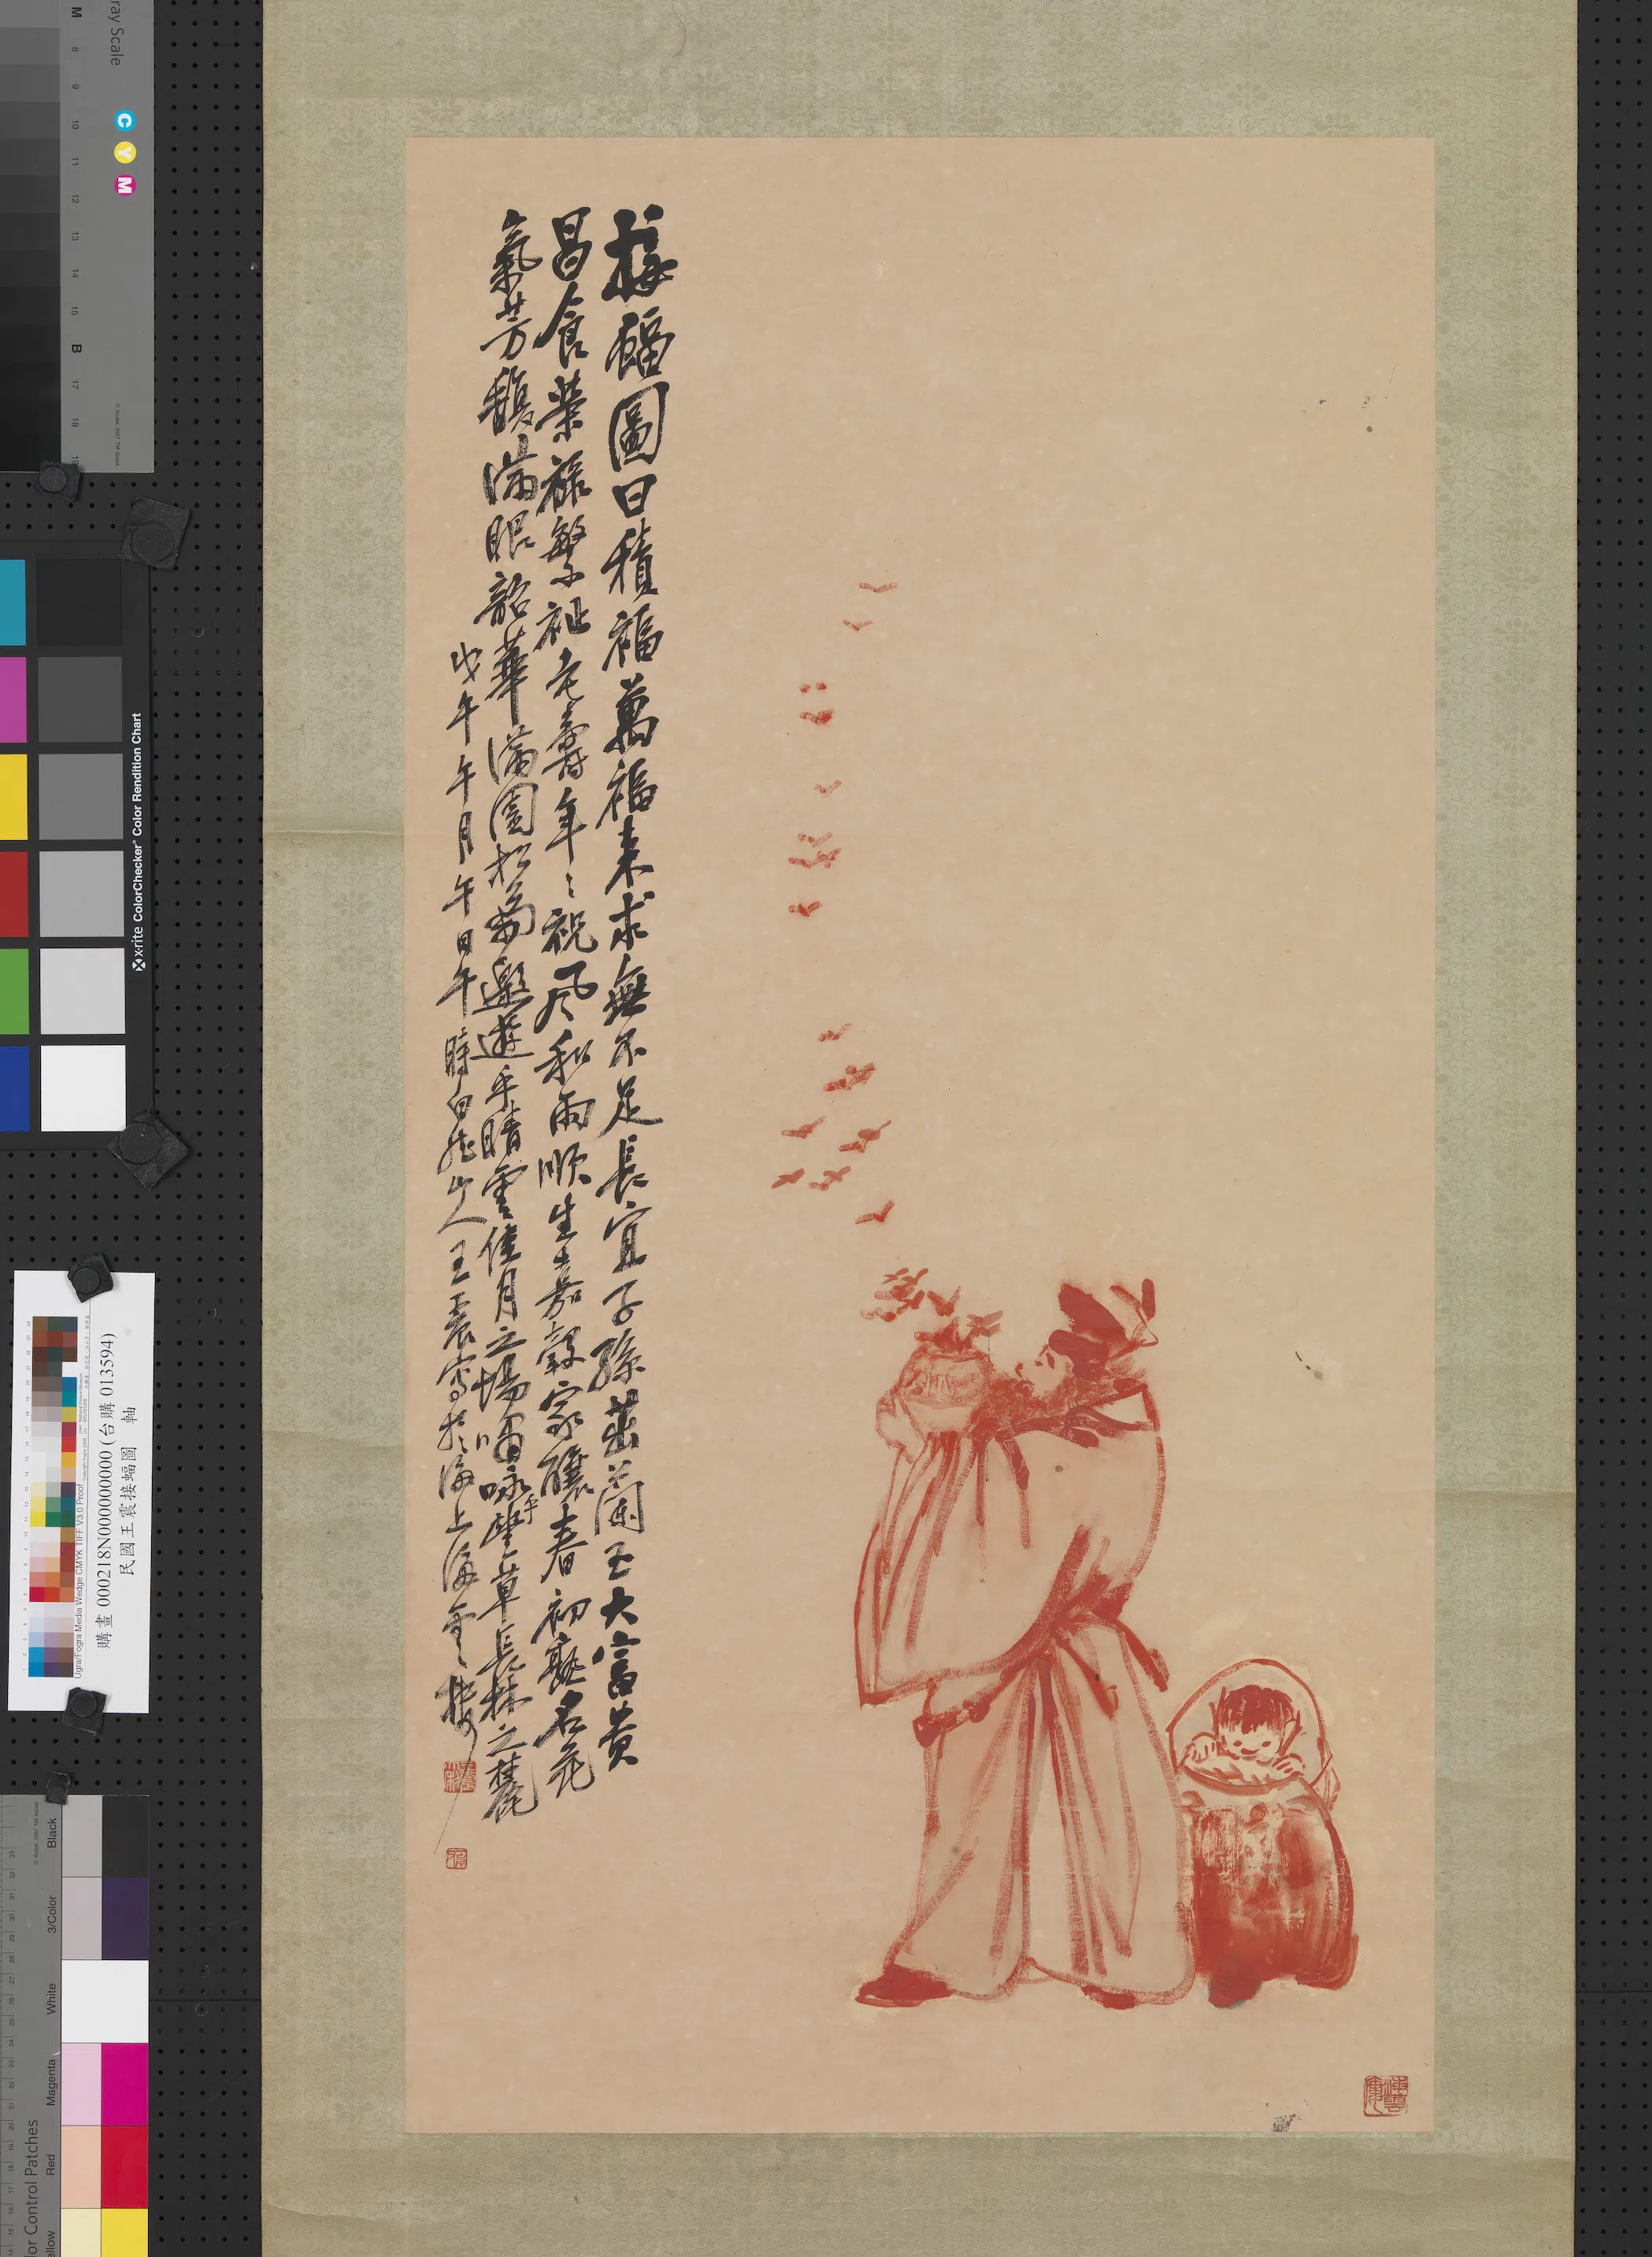 接蝠圖曰積福萬福來求無不足長宜子孫茁蘭玉大富貴
昌食榮祿繁祉老壽年〻祝風和雨順生嘉穀家釀春初熟名花
氣芳馥滿眼韶華滿園松菊遨遊乎晴雲佳月之場嘯咏乎豐草長林之麓
戊午午月午日午時白龍山人王震寫於海上海雲樓
購畫 000218N000000000 (台購 013594)
民國王震接蝠圖 軸
x-rite ColorChecker Color Rendition Chart
ray Scale
C Y M
M 8 9 10 11 12 13 14 15 B 17 18 19
Ugra/Fogra Media Wedge CMYK TIFF V3.0 Proof
lor Control Patches
Black
3/Color
White
Magenta
Red
ellow